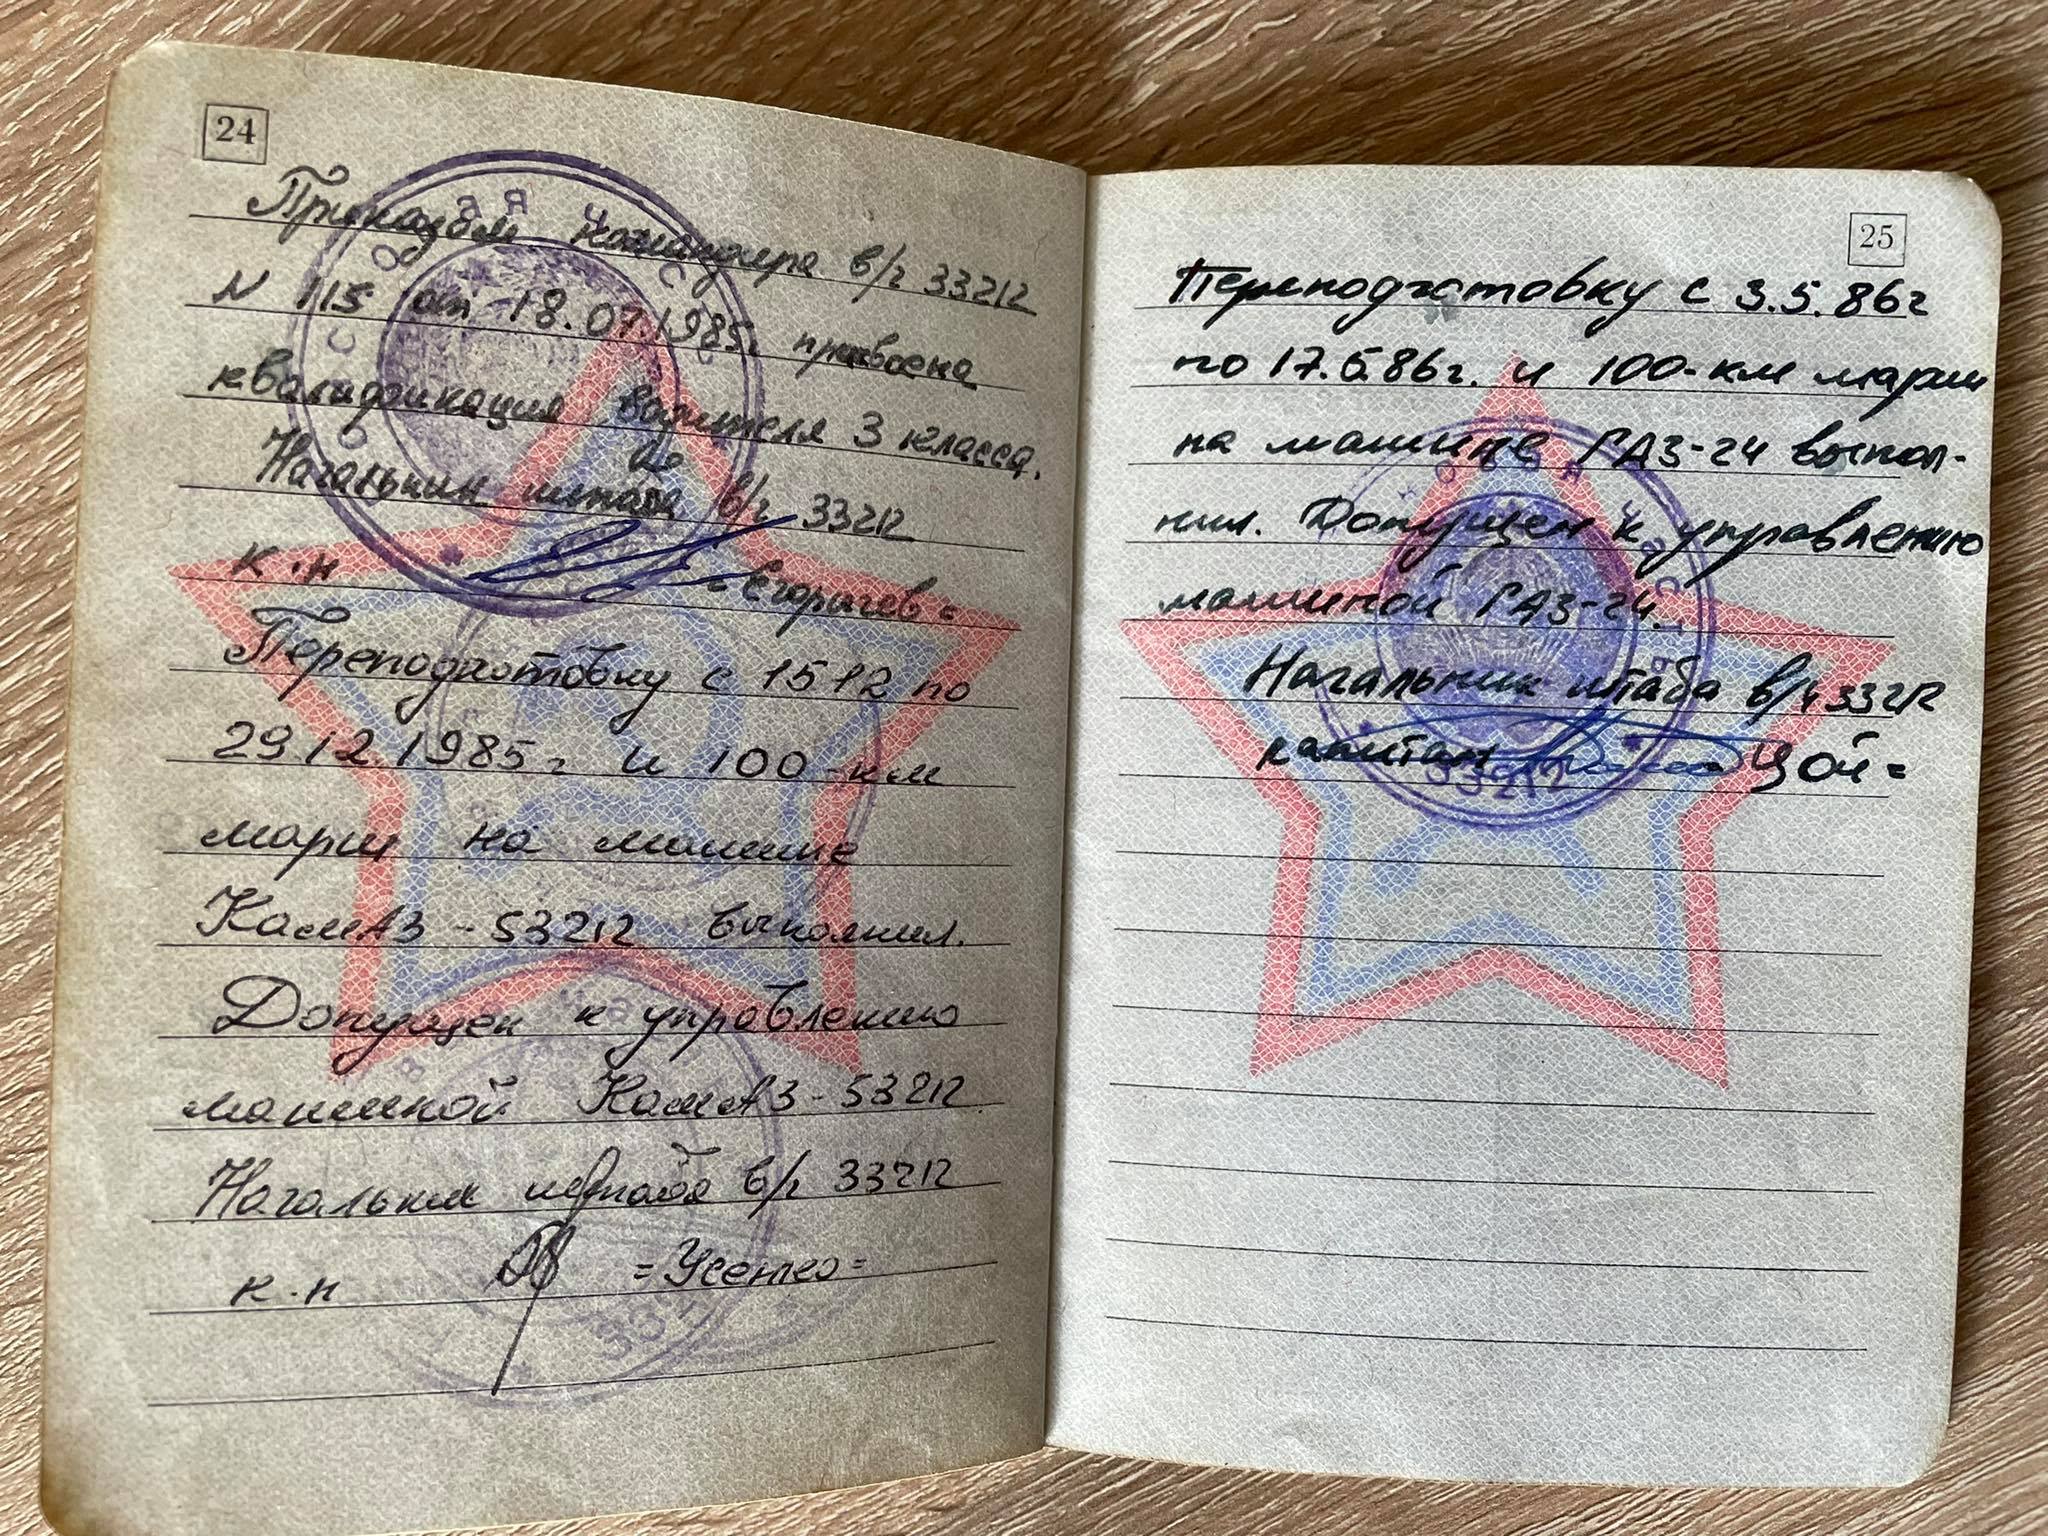 24
Приказом командира в/ч 33212
N 115 от 18.07.1985г присвоена
квалификация водителя 3 класса.
Начальник штаба в/ч 33212
к-н =Егорычев=
Переподготовку с 15.12 по
29.12.1985г и 100-км
марш на машине
КамАЗ-53212 выполнил.
Допущен к управлению
машиной КамАЗ-53212
Начальник штаба в/ч 33212
к-н =Усенко=
25
Переподготовку с 3.5.86г
по 17.5.86г. и 100-км марш
на машине ГАЗ-24 выпол-
нил. Допущен к управлению
машиной ГАЗ-24.
Начальник штаба в/ч 33212
капитан Цой=
33212